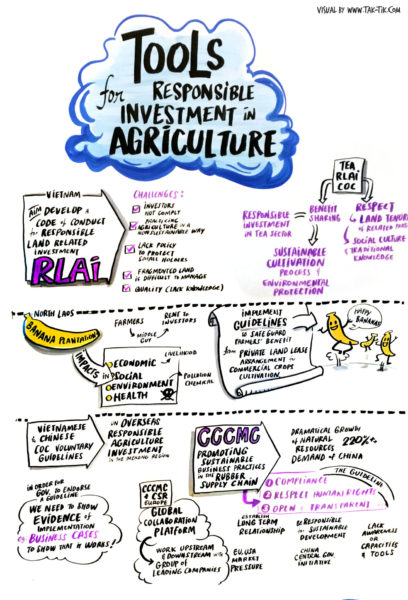 VISUAL BY WWW.TAK-TIK.COM
TOOLS
for RESPONSIBLE
INVESTMENT in
AGRICULTURE
VIETNAM
AIM DEVELOP A
CODE of CONDUCT
for RESPONSIBLE
LAND RELATED
INVESTMENT
RLAi
CHALLENGES:
INVESTORS
NOT COMPLY
AGRICULTURE in a
WAY
LACK POLICY
to PROTECT
SMALL HOLDERS
FRAGMENTED LAND
DIFFICULT to MANAGE
QUALITY (LACK KNOWLEDGE)
TEA
RLAi
COC
RESPONSIBLE
INVESTMENT
IN TEA SECTOR
BENEFIT
SHARING
SUSTAINABLE
CULTIVATION
PROCESS &
ENVIRONMENTAL
PROTECTION
RESPECT
LAND TENURE
OF RELATED
SOCIAL CULTURE
& TRADITIONAL
KNOWLEDGE
NORTH LAOS
BANANA PLANTATIONS
IMPACTS in
FARMERS
MIDDLE
GUY
RENT to
INVESTORS
ECONOMIC
SOCIAL
ENVIRONMENT
HEALTH
LIVELIHOOD
POLLUTION
CHEMICAL
IMPLEMENT
GUIDELINES
to SAFEGUARD
FARMERS' BENEFIT
from PRIVATE LAND LEASE
ARRANGEMENT in
COMMERCIAL CROPS
CULTIVATION
HAPPY
BANANAS
VIETNAMESE
& CHINESE
COC VOLUNTARY
GUIDELINES
on OVERSEAS
RESPONSIBLE
AGRICULTURE
INVESTMENT
in the MEKONG REGION
CCCMC
PROMOTING
SUSTAINABLE
BUSINESS PRACTICES
in the RUBBER
SUPPLY CHAIN
DRAMATICAL GROWTH
of NATURAL 220%
RESOURCES
DEMAND of CHINA
THE GUIDELINE
1 COMPLIANCE
2 RESPECT HUMAN RIGHTS
3 OPEN & TRANSPARENT
in ORDER for
GOV. to ENDORSE
a GUIDELINE
WE NEED to SHOW
EVIDENCE of
IMPLEMENTATION
eg BUSINESS CASES
to SHOW that it WORKS!
CCCMC
& CSR
EUROPE
GLOBAL
COLLABORATION
PLATFORM
WORK UPSTREAM
& DOWNSTREAM with
GROUP of
LEADING COMPANIES
EU, USA
MARKET
PRESSURE
ESTABLISH
LONG TERM
RELATIONSHIP
BE RESPONSIBLE
for SUSTAINABLE
DEVELOPMENT
CHINA
CENTRAL GOV.
INITIATIVE
LACK
AWARENESS
or
CAPACITIES
& TOOLS